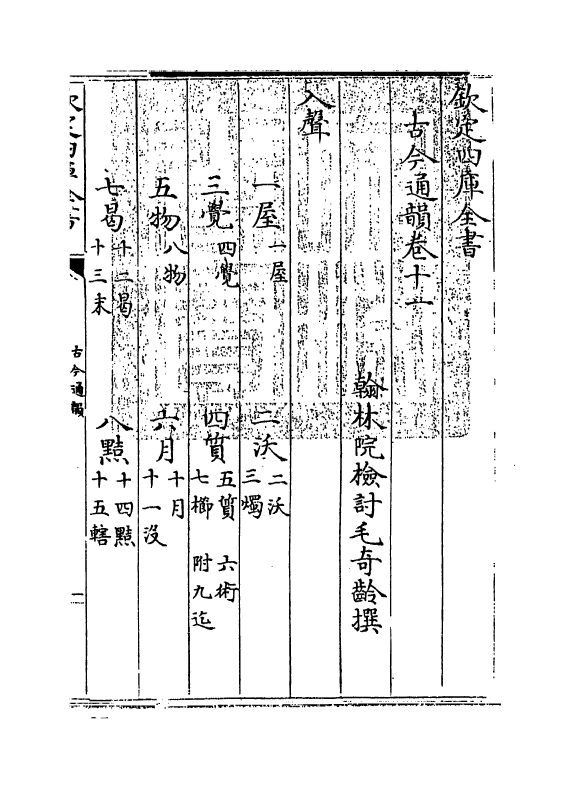 欽定四庫全書
古今通韻卷十一
翰林院檢討毛奇齡撰
入聲
一屋 一屋 二沃 二沃 三燭
三覺 四覺 四質 五質 六術 七櫛 附九迄
五物 八物 六月 十月 十一沒
七曷 十二曷 十三末 八黠 十四黠 十五轄
古今通韻
一